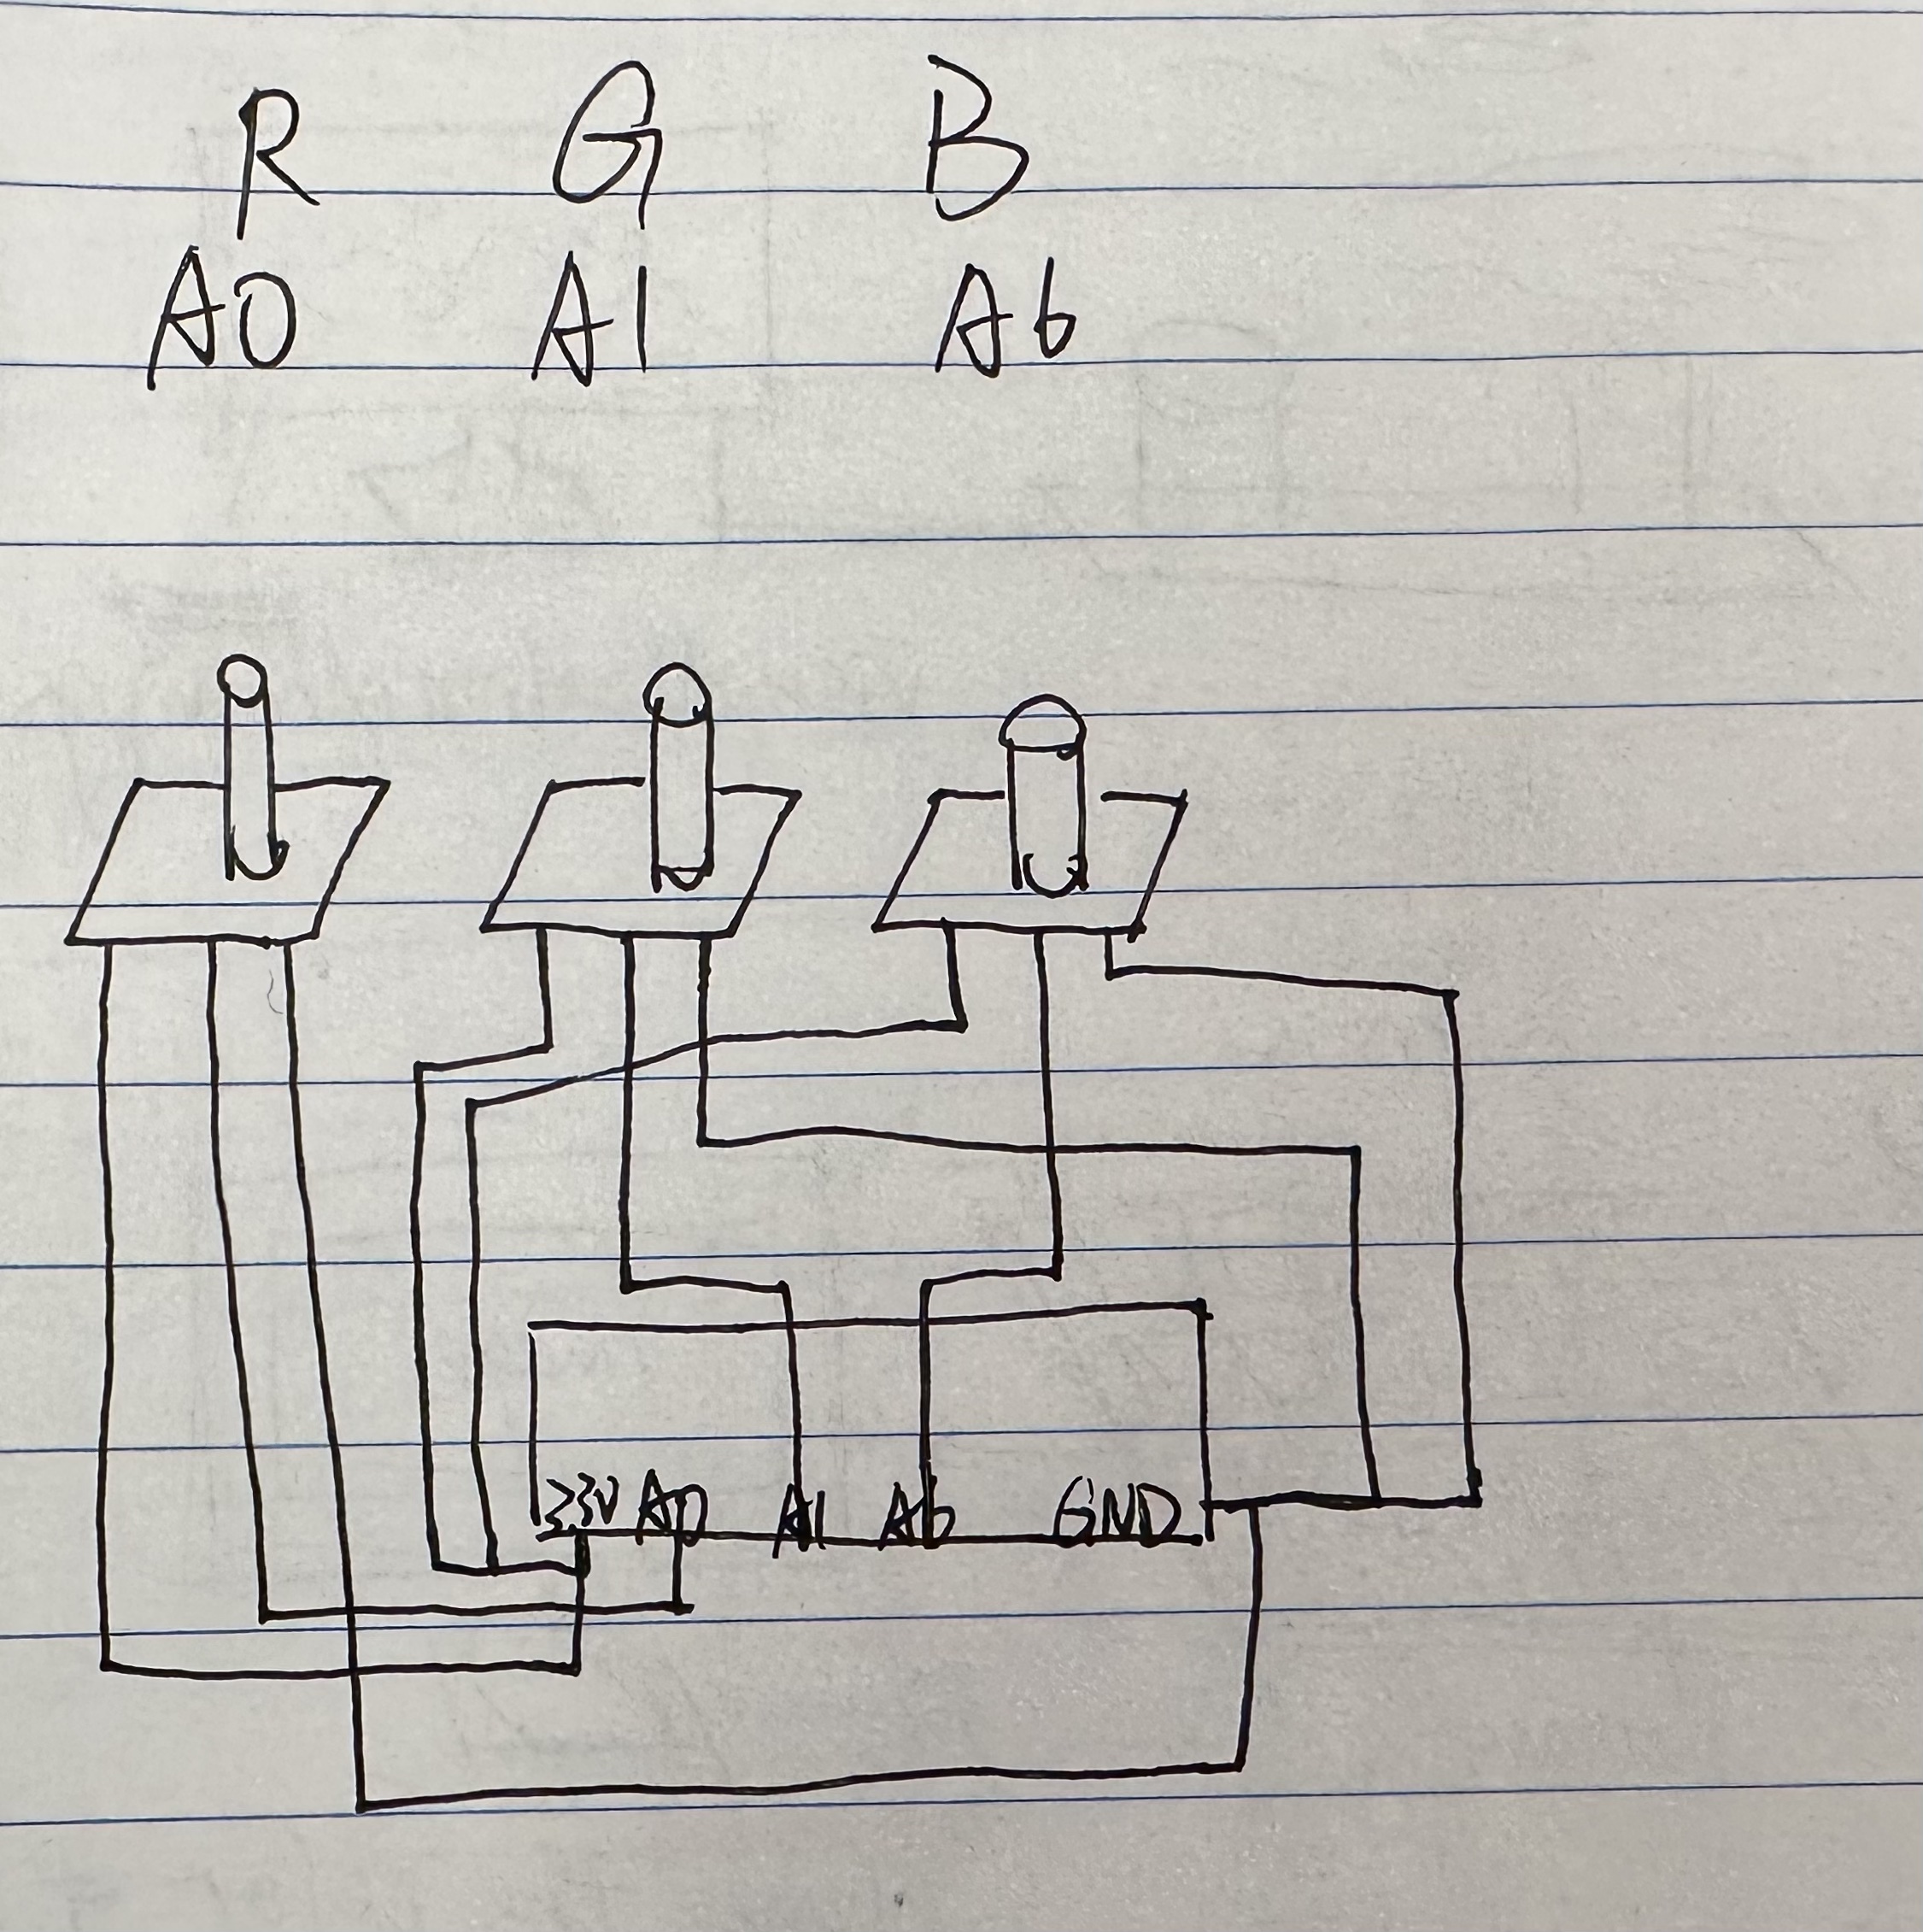 R G B
A0 A1 A6
3.3V A0 A1 A6 GND